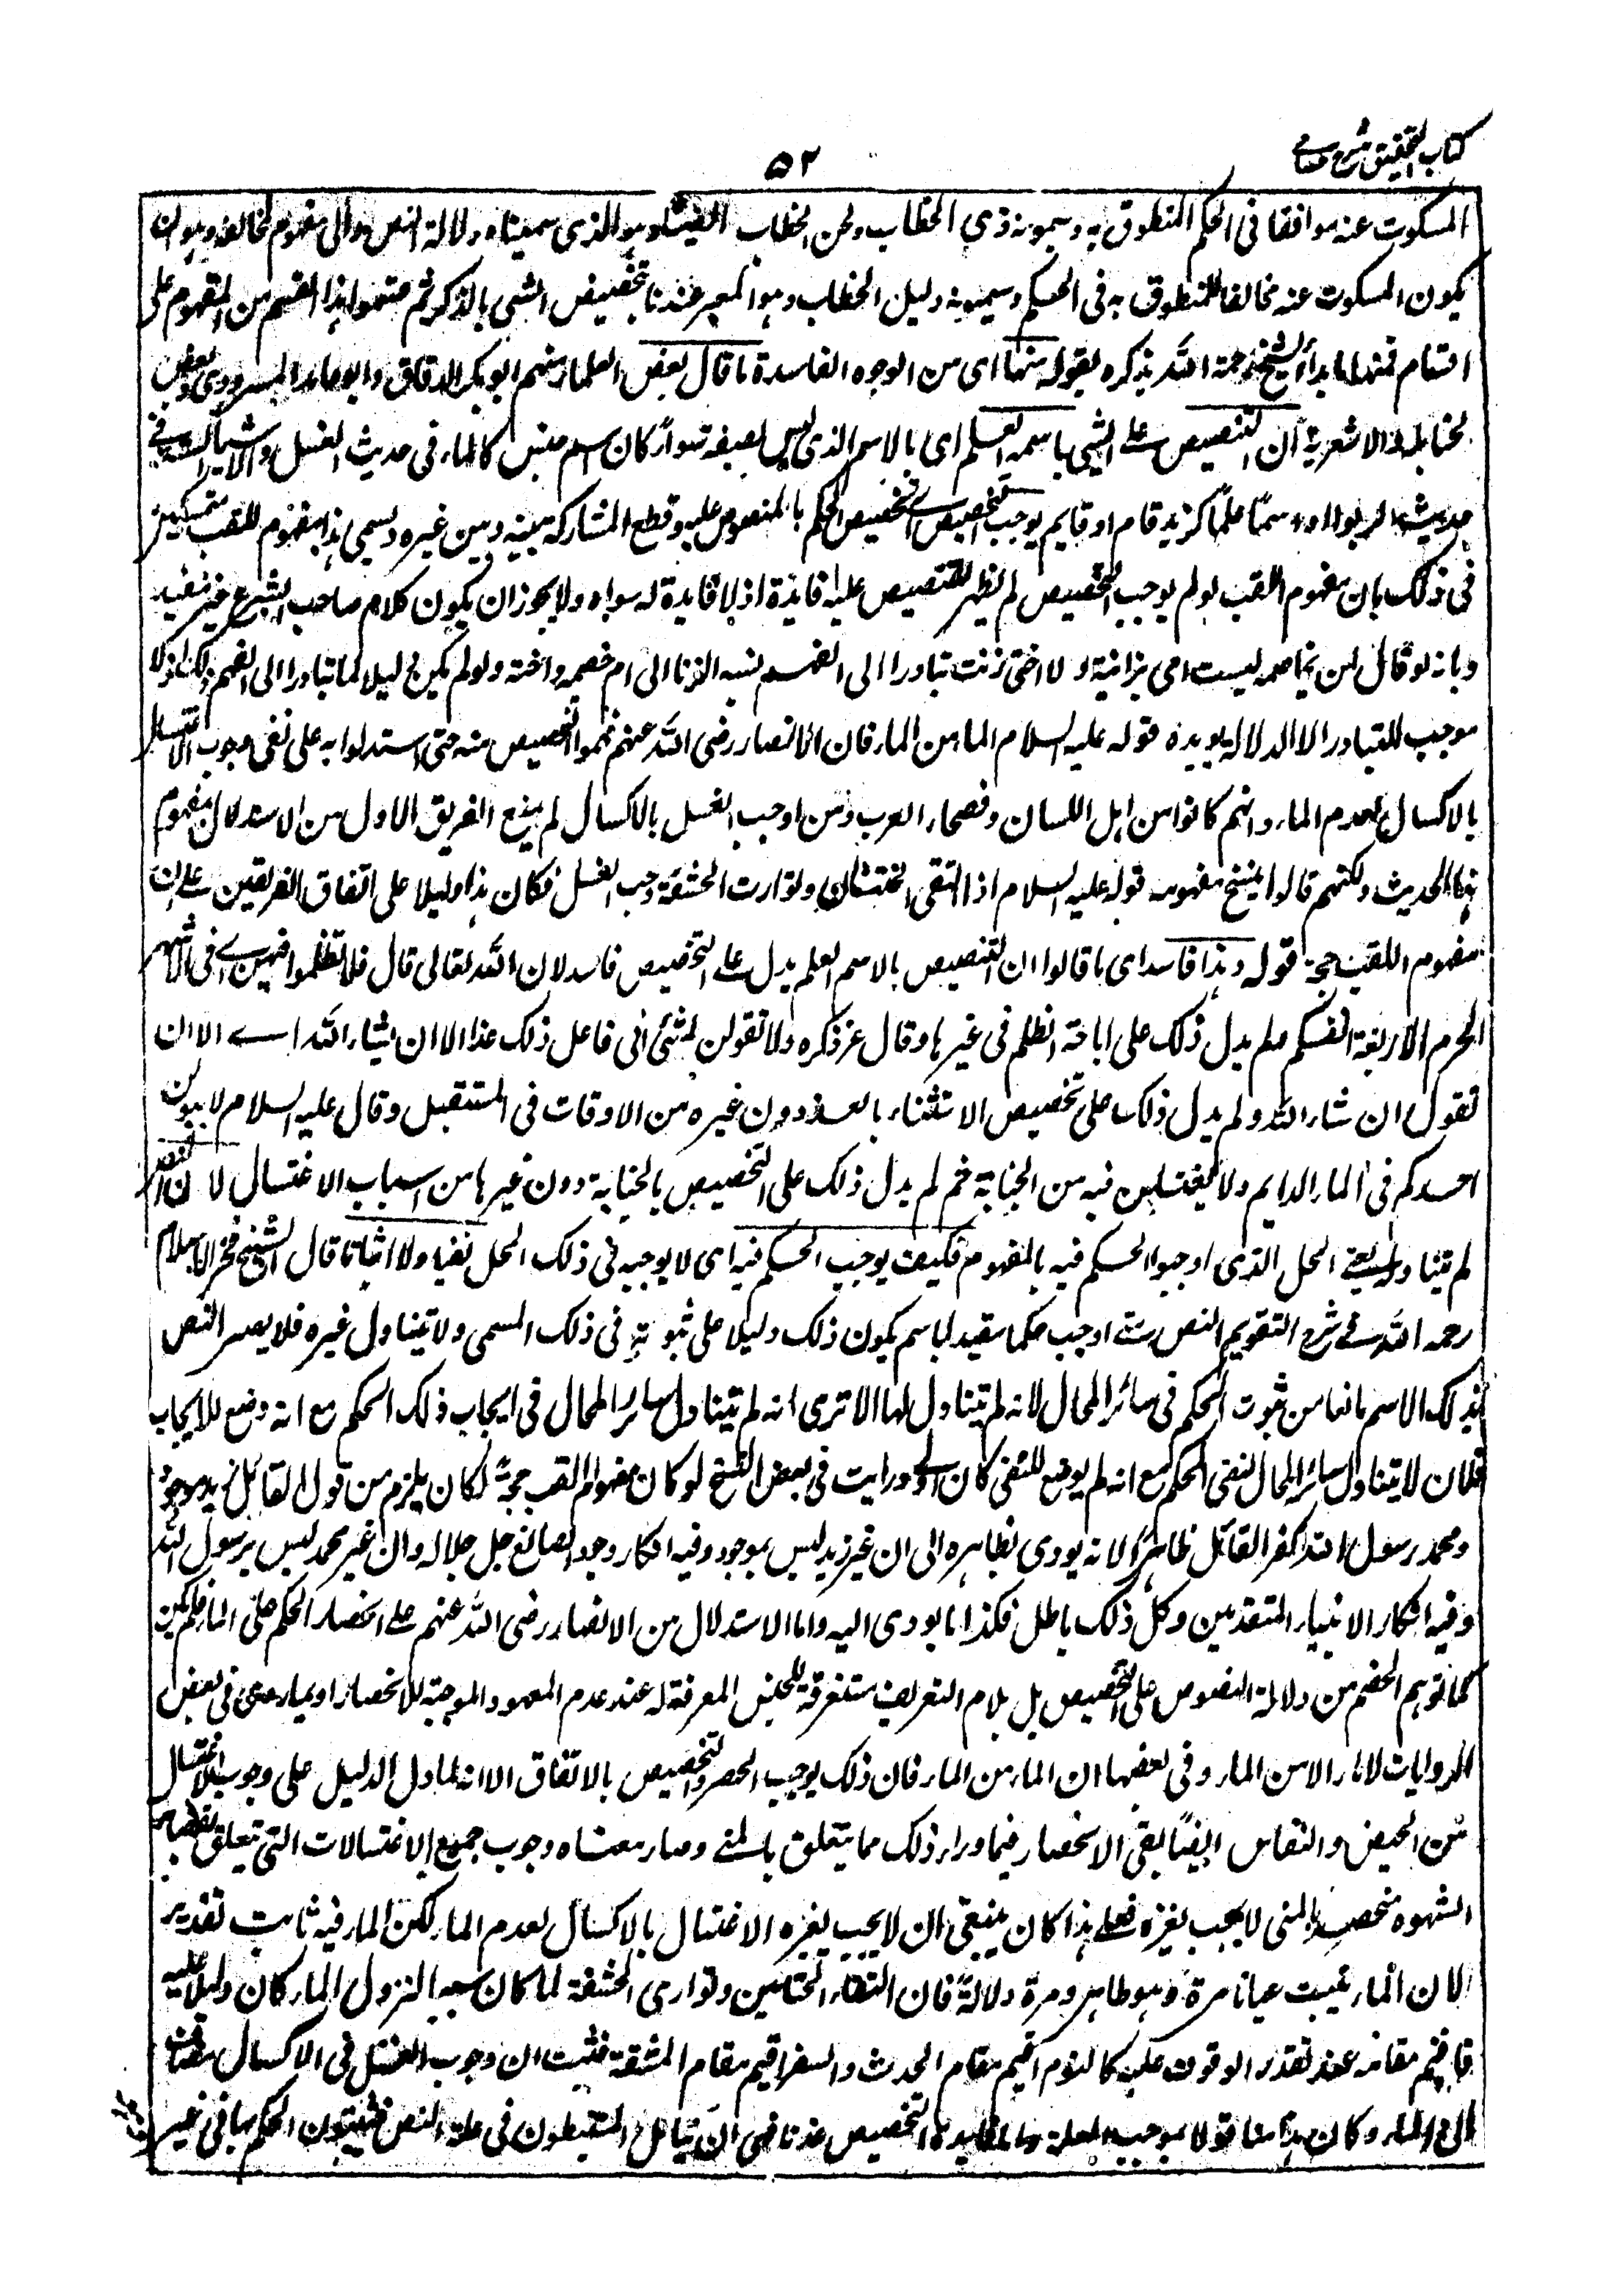 كتاب التحقيق شرح حسامي
٥٢
المسكوت عنه موافقا في الحكم المنطوق به ويسمونه فحوى الخطاب ولحن الخطاب ايضا وهو الذي سميناه دلالة النص والى مفهوم مخالفة وهو ان
يكون المسكوت عنه مخالفا للمنطوق به في الحكم ويسمونه دليل الخطاب وهو المعبر عندنا بتخصيص الشي بالذكر ثم قسموا هذا القسم من المفهوم على
اقسام فمنها ما بدأ الشيخ رحمة الله بذكره بقوله منها اى من الوجوه الفاسدة ما قال بعض العلماء منهم ابو بكر الدقاق وابو حامد المروروذي وبعض
الحنابلة والاشعرية ان التنصيص على الشي باسمه العلم اى بالاسم الذي ليس بصفة سواء كان اسم جنس كالماء في حديث الغسل والاشياء الستة في
حديث الربوا او اسما علما كزيد قام او قايم يوجب التخصيص اى تخصيص الحكم بالمنصوص عليه وقطع المشاركة بينه وبين غيره ويسمى هذا مفهوم اللقب متمسكين
في ذلك بان مفهوم اللقب لو لم يوجب التخصيص لم يظهر للتنصيص عليه فايدة اذ لا فايدة له سواه ولا يجوز ان يكون كلام صاحب الشرع غير مفيد
وبانه لو قال لمن يخاصمه ليست امى بزانية او لا اختى زنت تبادر الى الفهم نسبة الزنا الى ام خصمه واخته ولو لم يكن دليلا لما تبادر الى الفهم ذلك اذ لا
موجب للتبادر الا الدلالة يويده قوله عليه السلام الماء من الماء فان الانصار رضى الله عنهم فهموا التخصيص منه حتى استدلوا به على نفى وجوب الاغتسال
بالاكسال لعدم الماء وانهم كانوا من اهل اللسان وفصحاء العرب ومن اوجب الغسل بالاكسال لم يمنع الفريق الاول من الاستدلال بمفهوم
هذا الحديث ولكنهم قالوا ينسخ مفهومه قوله عليه السلام اذا التقى الختانان وتوارت الحشفة وجب الغسل فكان هذا دليلا على اتفاق الفريقين على ان
مفهوم اللقب حجة قوله وهذا فاسد اى ما قالوا ان التنصيص بالاسم العلم يدل على التخصيص فاسد لان الله تعالى قال فلا تظلموا فيهن اى في الاشهر
الحرم الاربعة انفسكم ولم يدل ذلك على اباحة الظلم في غيرها وقال عز ذكره ولا تقولن لشئ انى فاعل ذلك غدا الا ان يشاء الله اى الا ان
تقول ان شاء الله ولم يدل ذلك على تخصيص الاستثناء بالغد دون غيره من الاوقات في المستقبل وقال عليه السلام لا يبولن
احدكم في الماء الدايم ولا يغتسلن فيه من الجنابة ثم لم يدل ذلك على التخصيص بالجنابة دون غيرها من اسباب الاغتسال لان النص
لم يتناوله يعنى المحل الذى اوجبوا الحكم فيه بالمفهوم فكيف يوجب الحكم فيه اى لا يوجبه في ذلك المحل نفيا ولا اثباتا قال الشيخ فخر الاسلام
رحمه الله في شرح التقويم النص متى اوجب حكما مقيدا باسم يكون ذلك دليلا على ثبوته في ذلك المسمى ولا يتناول غيره فلا يصير النص
بذلك الاسم مانعا من ثبوت الحكم في سائر المحال لانه لم يتناول لها الا ترى انه لم يتناول سائر المحال في ايجاب ذلك الحكم مع انه وضع للايجاب
فلان لا يتناول سائر المحال لنفى الحكم مع انه لم يوضع للنفى كان اولى ورايت في بعض النسخ لو كان مفهوم اللقب حجة لكان يلزم من قول القائل زيد موجود
ومحمد رسول الله كفر القائل ظاهرا لانه يودى بظاهره الى ان غير زيد ليس بموجود وفيه انكار وجود الصانع جل جلاله وان غير محمد ليس برسول الله
وفيه انكار الانبياء المتقدمين وكل ذلك باطل فكذا ما يودى اليه واما الاستدلال من الانصار رضى الله عنهم على انحصار الحكم على الماء فلم يكن
كما توهم الخصم من دلالة النصوص على التخصيص بل بلام التعريف مستغرقة للجنس المعرفة له عند عدم المعهود الموجبة للانحصار او بما روى في بعض
الروايات لا ماء الا من الماء وفي بعضها ان الماء من الماء فان ذلك يوجب الحصر والتخصيص بالاتفاق الا انه لما دل الدليل على وجوب الاغتسال
من الحيض والنفاس ايضا بقى الانحصار فيما وراء ذلك مما يتعلق بالمنى وصار معناه وجوب جميع الاغتسالات التى تتعلق بقضاء
الشهوة منحصر بالمنى لا يجب بغيره فعلى هذا كان ينبغى ان لا يجب بغيره الاغتسال بالاكسال لعدم الماء لكن الماء فيه ثابت تقديرا
لان الماء يثبت عيانا مرة وهو ظاهر ومرة دلالة فان التقاء الختانين وتوارى الحشفة لما كان سببا لنزول الماء كان دليلا عليه
فاقيم مقامه عند تعذر الوقوف عليه كالنوم اقيم مقام الحدث والسفر اقيم مقام المشقة فثبت ان وجوب الغسل في الاكسال مضاف
الى الماء وكان هذا منا قولا بموجب العلة واما فايدة التخصيص عندنا فهى ان يتامل المستنبطون في علة النص فيثبتون الحكم بها في غير